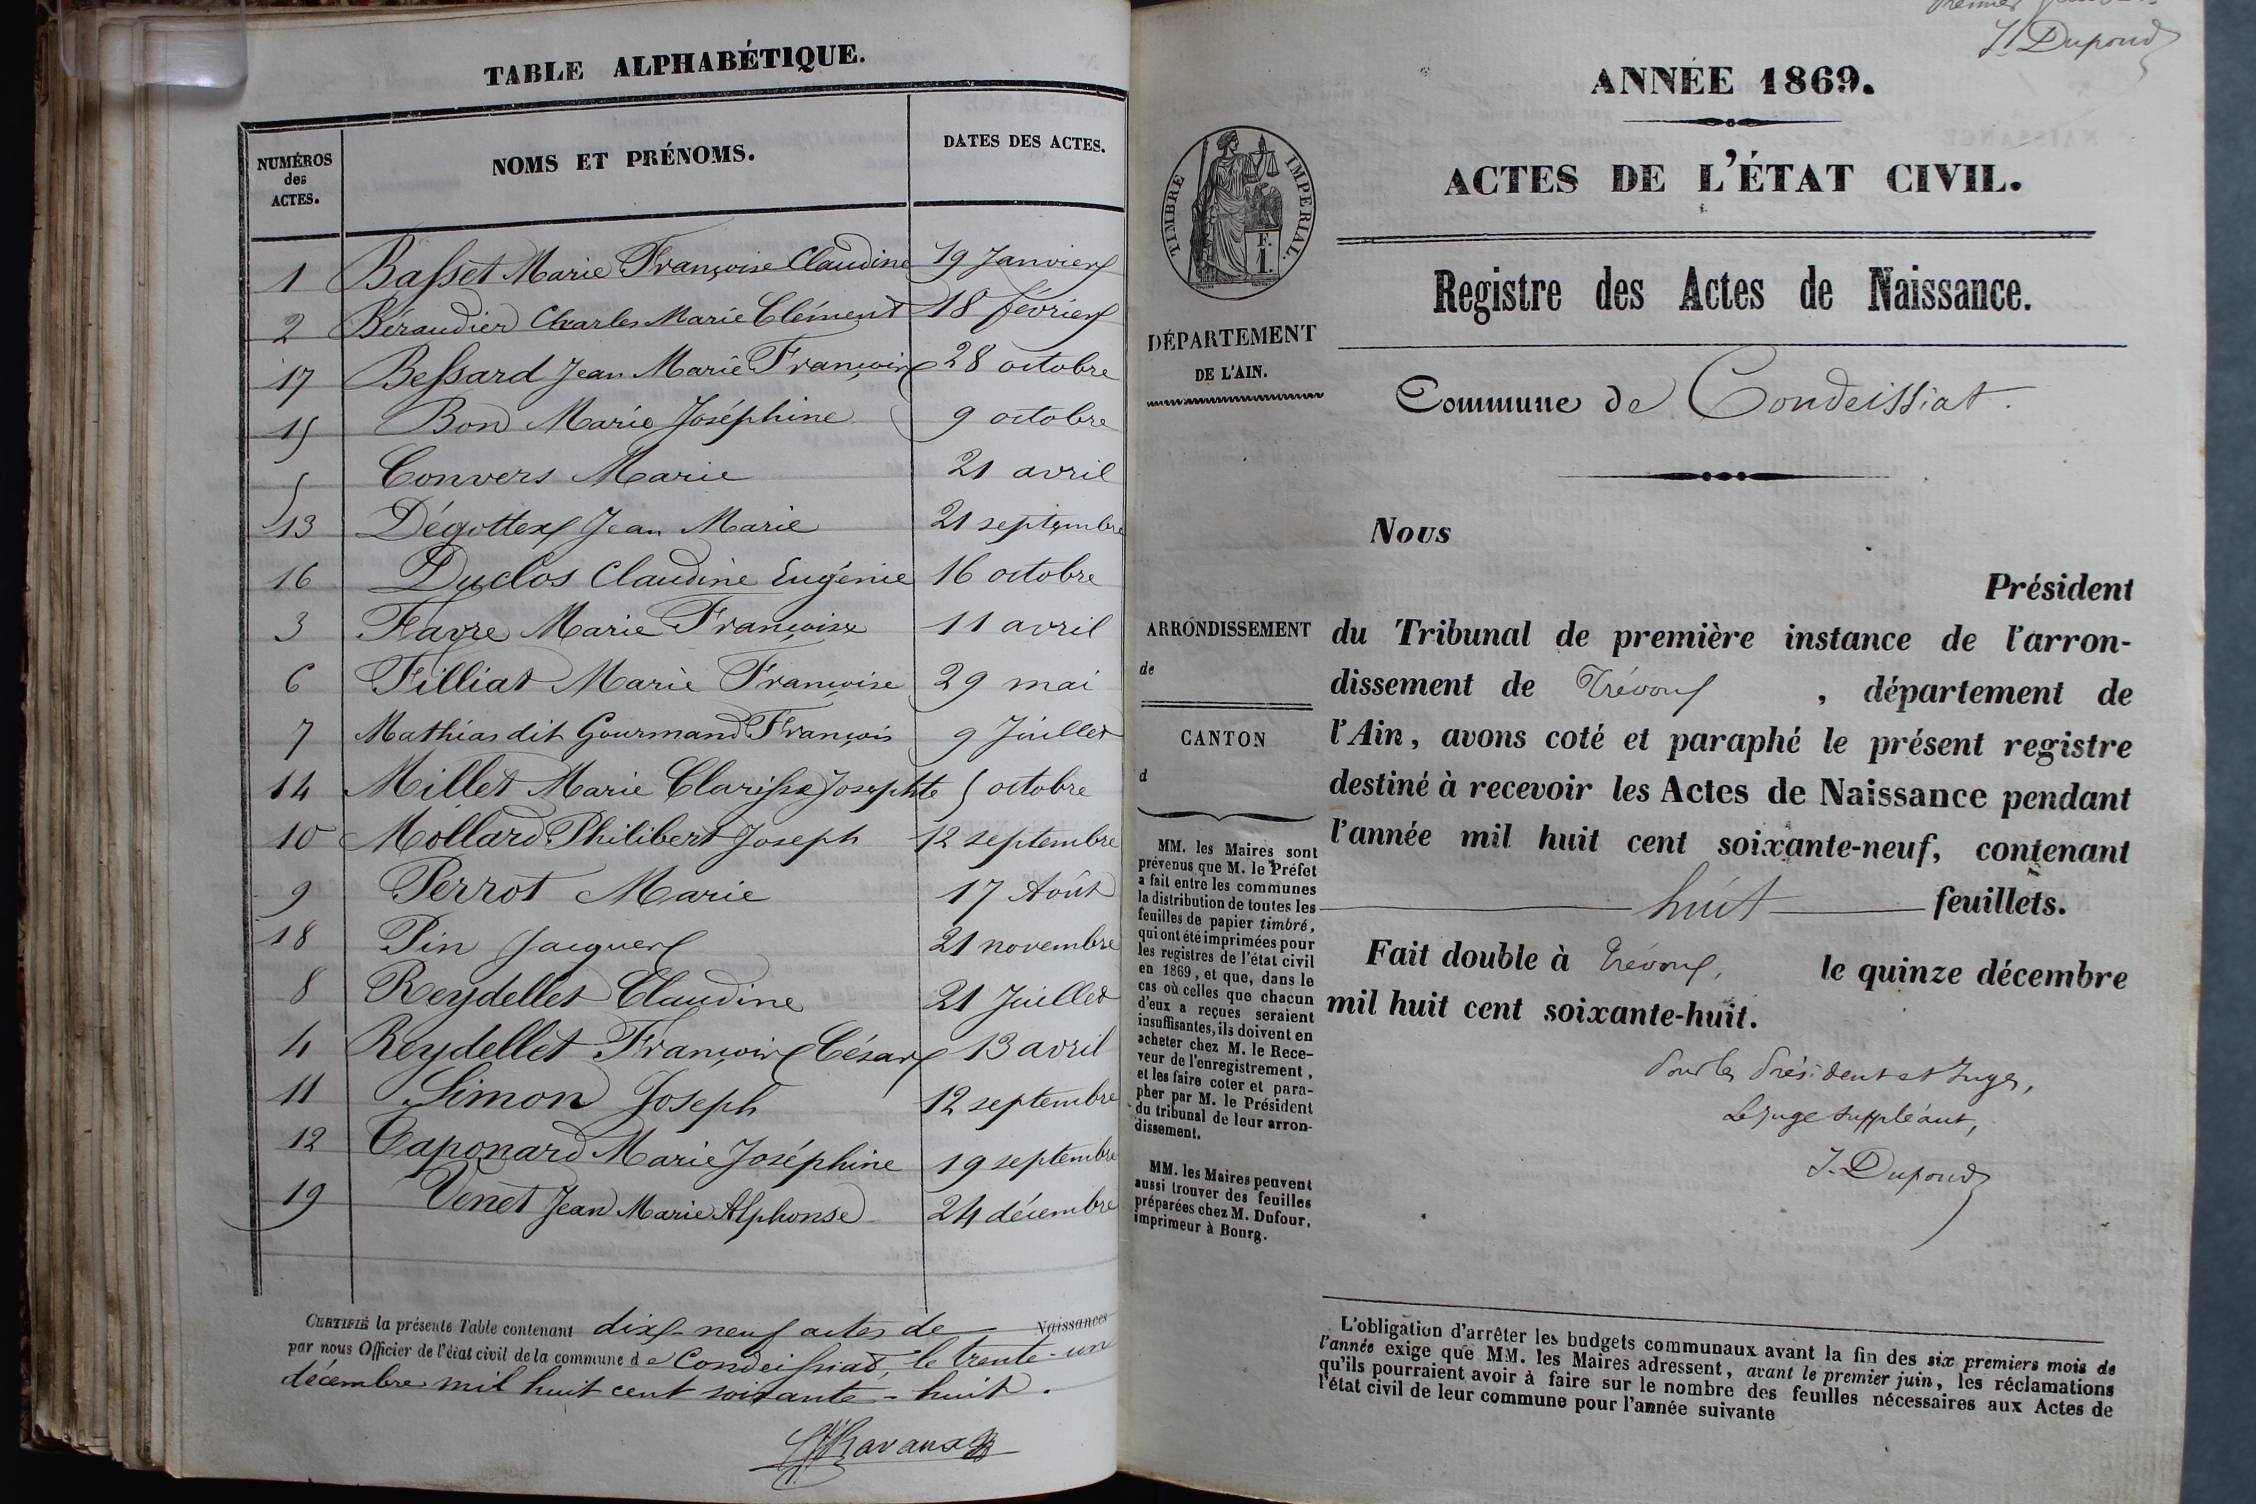 TABLE ALPHABÉTIQUE.
NUMÉROS
des
ACTES.
NOMS ET PRÉNOMS.
DATES DES ACTES.
1 Basset Marie Françoise Claudine 19 Janvier
2 Béraudier Charles Marie Clément 18 février
17 Bessard Jean Marie François 28 octobre
15 Bon Marie Joséphine 9 octobre
5 Convers Marie 21 avril
13 Dégottex Jean Marie 21 septembre
16 Duclos Claudine Eugénie 16 octobre
3 Favre Marie Françoise 11 avril
6 Filliat Marie Françoise 29 mai
7 Mathias dit Gourmand François 9 Juillet
14 Millet Marie Clarisse Josephte 5 octobre
10 Mollard Philibert Joseph 12 septembre
9 Perrot Marie 17 Août
18 Pin Jacques 21 novembre
8 Reydellet Claudine 21 Juillet
4 Reydellet François César 13 avril
11 Simon Joseph 12 septembre
12 Taponard Marie Joséphine 19 septembre
19 Venet Jean Marie Alphonse 24 décembre
CERTIFIÉ la présente Table contenant dix-neuf actes de Naissances
par nous Officier de l'état civil de la commune de Condeissiat, le trente-un
décembre mil huit cent soixante-huit.
Ravaux
Premier
J. Dupond
ANNÉE 1869.
ACTES DE L'ÉTAT CIVIL.
TIMBRE IMPERIAL.
F.
1.
Registre des Actes de Naissance.
DÉPARTEMENT
DE L'AIN.
Commune de Condeissiat.
Nous
Président
ARRONDISSEMENT
de
CANTON
d
du Tribunal de première instance de l'arron-
dissement de Trévoux, département de
l'Ain, avons coté et paraphé le présent registre
destiné à recevoir les Actes de Naissance pendant
l'année mil huit cent soixante-neuf, contenant
huit feuillets.
Fait double à Trévoux, le quinze décembre
mil huit cent soixante-huit.
Pour les Président et Juges,
Le Juge suppléant,
J. Dupond
MM. les Maires sont
prévenus que M. le Préfet
a fait entre les communes
la distribution de toutes les
feuilles de papier timbré,
qui ont été imprimées pour
les registres de l'état civil
en 1869, et que, dans le
cas où celles que chacun
d'eux a reçues seraient
insuffisantes, ils doivent en
acheter chez M. le Rece-
veur de l'enregistrement,
et les faire coter et para-
pher par M. le Président
du tribunal de leur arron-
dissement.
MM. les Maires peuvent
aussi trouver des feuilles
préparées chez M. Dufour,
imprimeur à Bourg.
L'obligation d'arrêter les budgets communaux avant la fin des six premiers mois de
l'année exige que MM. les Maires adressent, avant le premier juin, les réclamations
qu'ils pourraient avoir à faire sur le nombre des feuilles nécessaires aux Actes de
l'état civil de leur commune pour l'année suivante